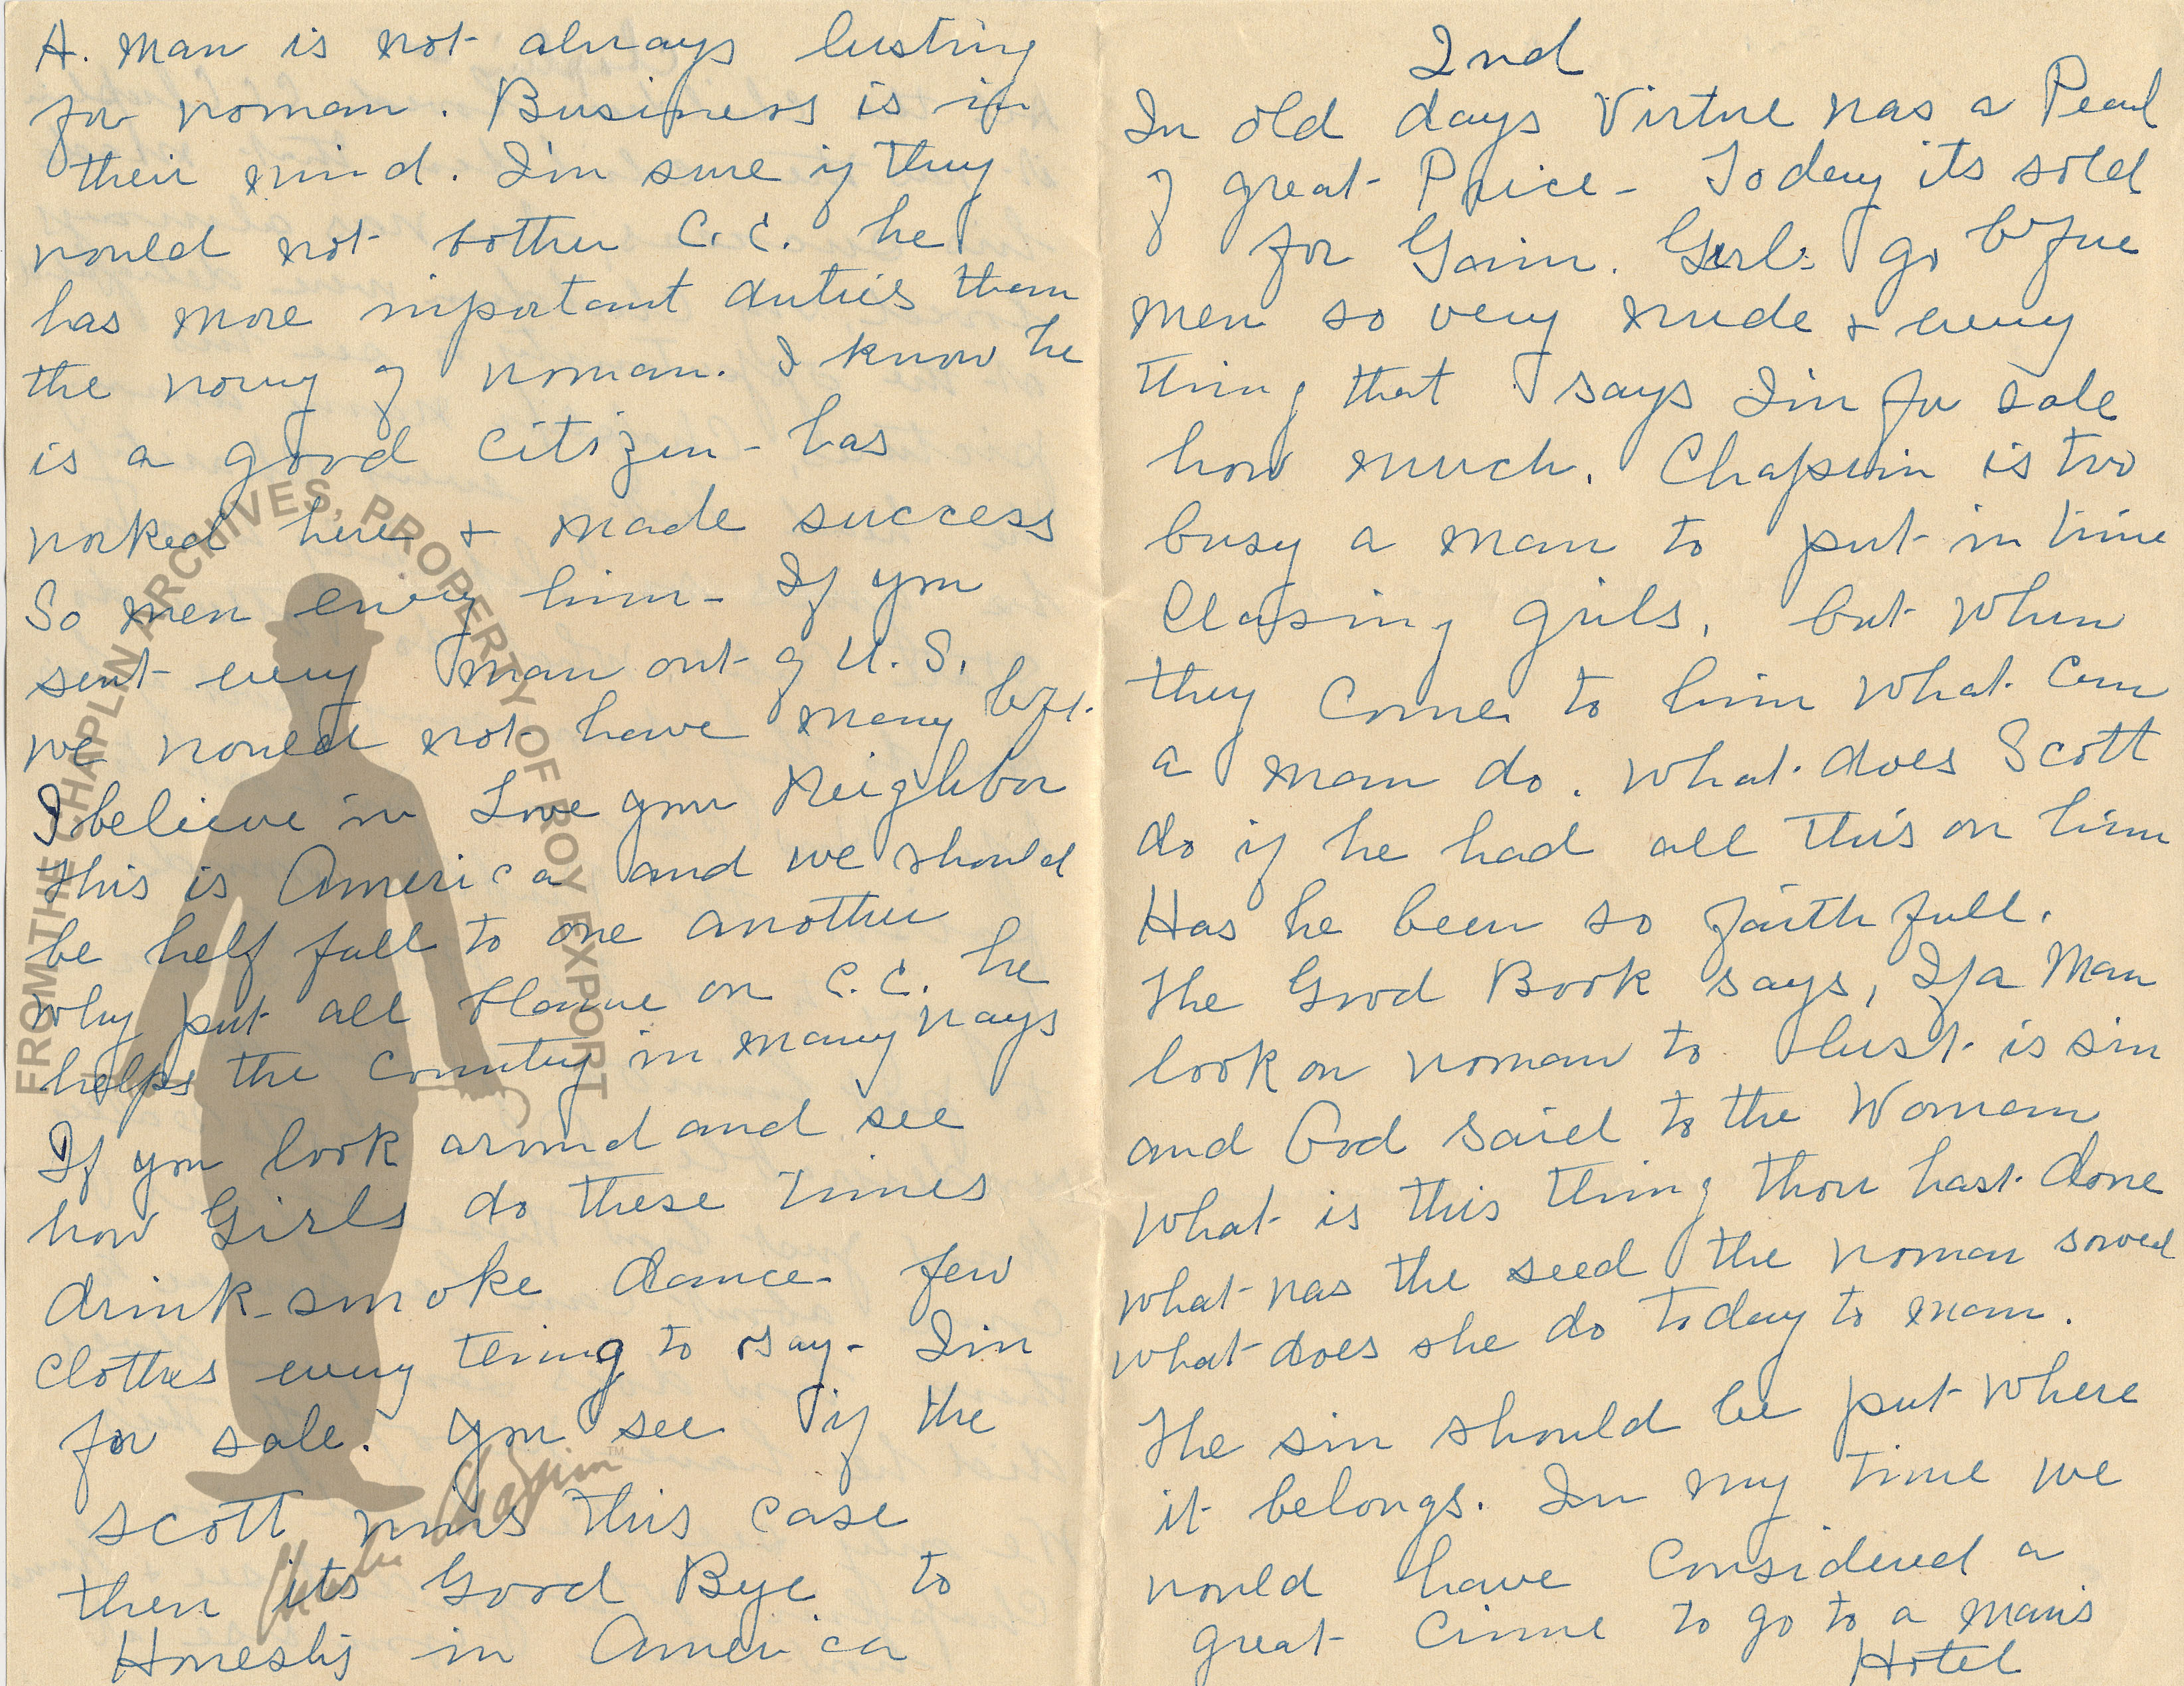 A. man is not always lusting
for woman. Business is in
their mind. I'm sure if they
would not bother C.C. he
has more important duties than
the worry of woman. I know he
is a good citizen - has
worked here + made success
So men envy him - If you
sent every man out of U.S.
we would not have many left.
I believe in Love your Neighbor
This is America and we should
be helf full to one another
why put all blame on C.C. he
helps the country in many ways
If you look around and see
how Girls do these times
drink - smoke dance - few
clothes every teing to say - I'm
for sale. you see if the
scott wins this case
then its Good Bye to
Honestis in America
2nd
In old days Virtue was a Pearl
of great Price - Today its sold
for Gain. Girls go before
men so very nude + every
thing that says I'm for sale
how much. Chapwin is two
busy a man to put in time
Clasing girls, but when
they come to him what can
a man do. what does Scott
do if he had all this on him
Has he been so faith full.
The Good Book says, If a Man
look on woman to lust is sin
and God said to the Woman
what is this thing thou hast done
what was the seed the woman sowed
what does she do today to man.
The sin should be put where
it belongs. In my time we
would have considered a
great crime to go to a man's
Hotel
FROM THE CHAPLIN ARCHIVES, PROPERTY OF ROY EXPORT
Charlie Chaplin™